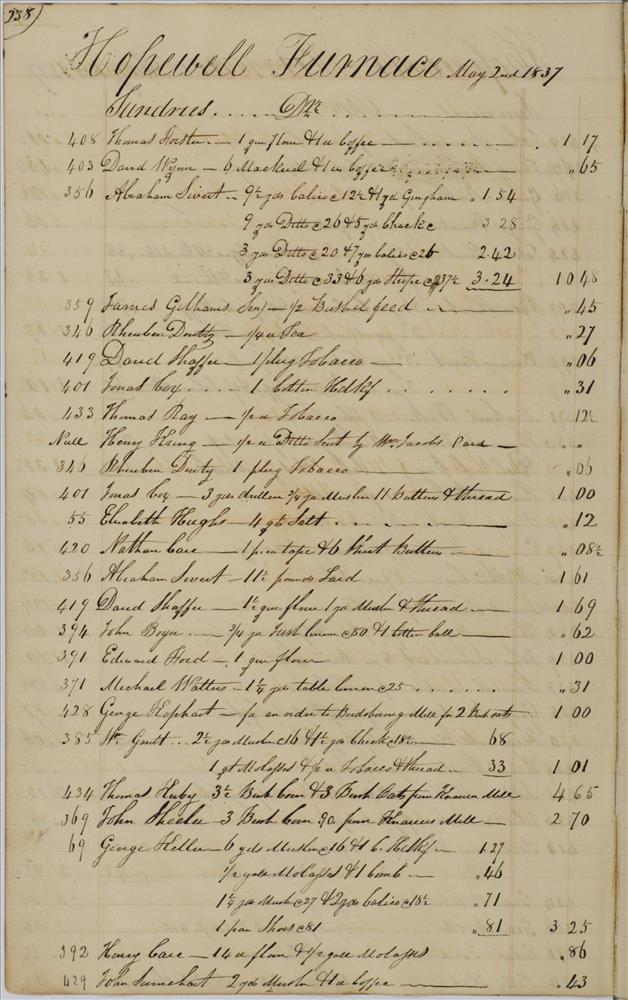 238)
Hopewell Furnace May 2nd 1837
Sundries . . . . . Drs
408 Thomas Foster — 1 qur flour & 1 lb Coffee — 1 17
403 David Wynn — 6 Mackerel & 1 lb Coffee — " 65
356 Abraham Sivert — 9½ yds Calico @ 12½ & 1 yd Gingham " 1.54
9 yds Ditto @ 26 & 5 yds Check @ 3 28
3 yds Ditto @ 20 & 7 yds Calico @ 26 2.42
3 yds Ditto @ 33 & 6 yds Stripe @ 37½ 3.24 10 48
359 James Gilhams Senr — 1/2 Bushel feed — " 45
346 Rheuben Doutty — 1/4 lb Tea " 27
419 David Shaffer — 1 plug Tobacco — " 06
401 Jonas Cox . . . . 1 Cotton Hdkf . . . . . . . " 31
433 Thomas Ray — 1/2 lb Tobacco 12½
Null Henry Kring — 1/2 lb Ditto Sent by Wm Jacobs Paid — " "
346 Rheuben Douty 1 plug Tobacco — " 06
401 Jonas Cox — 3 yds 3/4 yd Muslin 11 Buttons & thread 1 00
55 Elizabeth Hughs — 4 qts Salt . . . . . " 12
420 Nathan Care — 1 pcs tape & 6 Shirt Buttons — " 08½
356 Abraham Sivert — 11½ pounds Lard 1 61
419 David Shaffer — 1½ qur flour 1 yd Muslin & thread — 1 69
394 John Boyer — 3/4 yd Irish linen @ 80 & 1 Cotton ball — " 62
391 Edward Hood — 1 qur flour 1 00
371 Michael Watters — 1¼ yds table linen @ 25 . . . . . . " 31
428 George Hephart — for an order to Birdsboro Mill for 2 Bush oats 1 00
385 Wm Gault . . . 2½ yds Muslin @ 16 & 1½ yds Check @ 18½ — 68
1 qt Molasses & 1/2 lb Tobacco & thread — 33 1 01
434 Thomas Huby 3½ Bush Corn & 3 Bush Oats from Knauers Mill 4 65
369 John Sheeler — 3 Bush Corn 90 from Knauers Mill — 2 70
69 George Keller — 6 yds Muslin @ 16 & 1 C. Hdkf — 1.27
1/2 galls Molasses & 1 Comb — " 46
1¼ yds Muslin @ 27 & 2 yds Calico @ 18½ " 71
1 pair Shoes @ 81 " 81 3 25
392 Henry Care — 14 lb flour & 1/2 galls Molasses " 86
429 John 2 yds Muslin & 1 lb Coffee — " 43